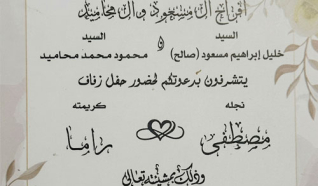 أفراح آل مسعود وآل محاميد
السيد السيد
خليل إبراهيم مسعود (صالح) و محمود محمد محاميد
يتشرفون بدعوتكم لحضور حفل زفاف
نجله كريمته
مصطفى راما
وذلك بمشيئة تعالى